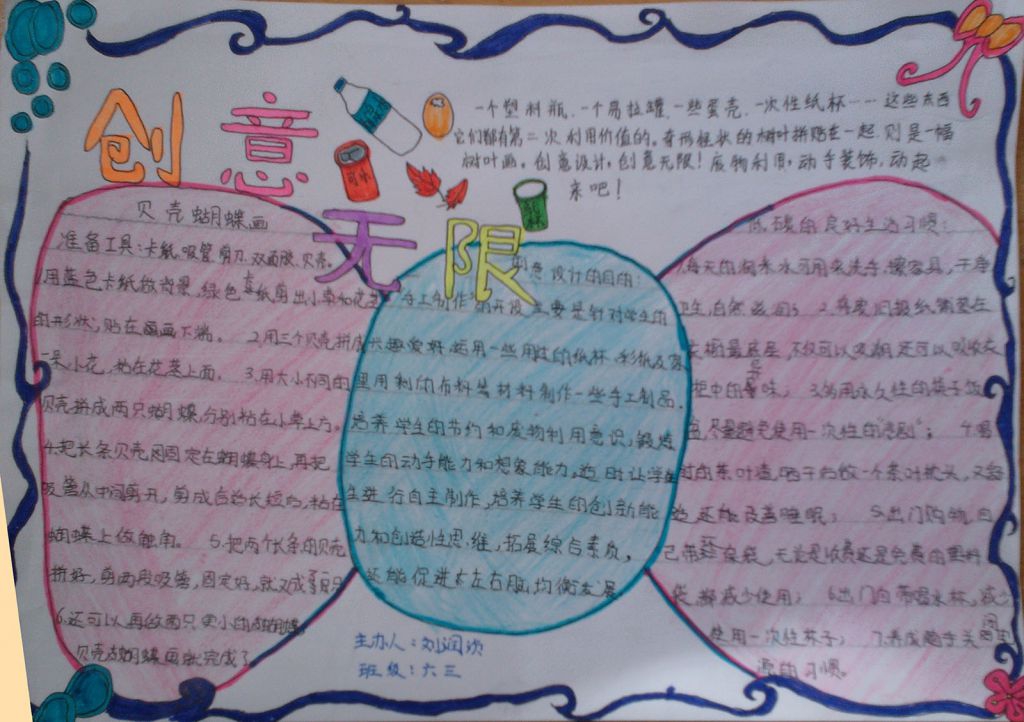 创意无限
一个塑料瓶、一个易拉罐、一些蛋壳、一次性纸杯……这些东西
它们都有第二次利用价值的。奇形怪状的树叶拼贴在一起,则是一幅
树叶画。创意设计,创意无限!废物利用,动手装饰,动起
来吧!
可乐
贝壳蝴蝶画
准备工具:卡纸、吸管、剪刀、双面胶、贝壳。
1.用蓝色卡纸做背景,绿色卡纸剪出小草和花茎
的形状,贴在画面下端。 2.用三个贝壳拼成
一朵小花,粘在花茎上面。 3.用大小不同的
贝壳拼成两只蝴蝶,分别粘在小草上方。
4.把长条贝壳固定在蝴蝶身上,再把
吸管从中间剪开,剪成合适长短后,粘在
蝴蝶上做触角。 5.把两个长条的贝壳
拼好,剪两段吸管,固定好,就
6.还可以再做两只更小的蝴蝶。
贝壳蝴蝶画就完成了
创意设计的目的:
"手工制作"的开设主要是针对学生的
兴趣爱好,运用一些用过的纸杯、彩纸及家
里用剩的布料等材料制作一些手工制品。
培养学生的节约和废物利用意识,锻炼
学生的动手能力和想象能力,适时让学
生进行自主制作,培养学生的创新能
力和创造性思维,拓展综合素质,
还能促进左右脑均衡发展。
低碳的良好生活习惯:
1.每天的淘米水可用来洗手、擦家具,干净
卫生,自然滋润; 2.将废旧报纸铺垫在
衣橱最底层,不仅可以吸潮,还可以吸收衣
柜中的异味; 3.多用永久性的筷子、饭
盒,尽量避免使用一次性的 4.喝
过的茶叶渣,晒干后做一个茶叶枕头,又舒
适,还能改善睡眠; 5.出门购物,自
己带环保袋,无论是收费还是免费的塑料
袋,都减少使用; 6.出门自带喝水杯,减少
使用一次性杯子; 7.养成随手关闭电
源的习惯。
主办人:刘润
班级:六三